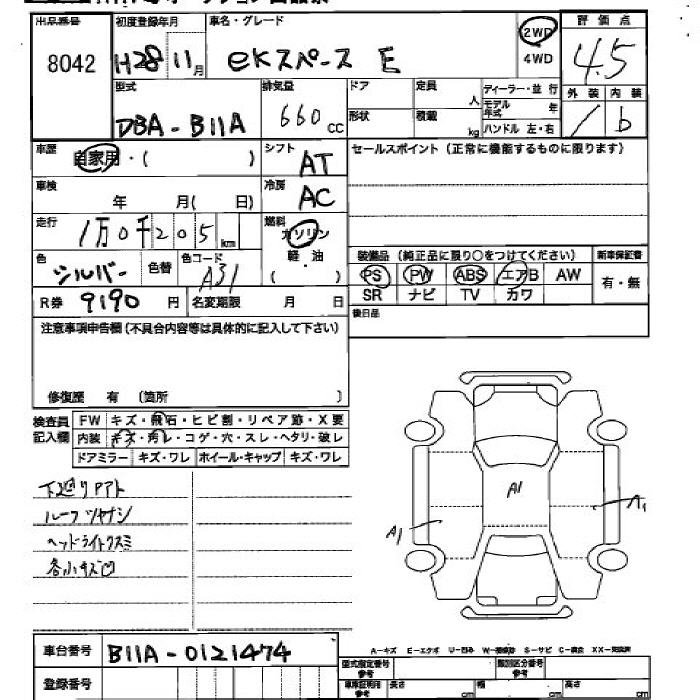 出品番号 初度登録年月 車名・グレード 評価点
8042 H28 11月 eKスペース E 2WD 4WD 4.5
型式 排気量 ドア 定員 人 ディーラー・並行 外装 内装
DBA-B11A 660cc 形状 積載 kg モデル年式 年 ハンドル 左・右 / b
車歴 自家用・( ) シフト AT セールスポイント (正常に機能するものに限ります)
車検 年 月( 日) 冷房 AC
走行 1万0千205km 燃料 ガソリン 軽・油 ( )
色 シルバー 色替 色コード A31
装備品 (純正品に限り○をつけてください) 新車保証書
PS PW ABS エアB AW 有・無
SR ナビ TV カワ
R券 9190円 名変期限 月 日 後日品
注意事項申告欄(不具合内容等は具体的に記入して下さい)
修復歴 有 (箇所 )
検査員記入欄 FW キズ・飛石・ヒビ割・リペア跡・X要
内装 キズ・汚レ・コゲ・穴・スレ・ヘタリ・破レ
ドアミラー キズ・ワレ ホイール・キャップ キズ・ワレ
ルーフツヤナシ
ヘッドライトクスミ
各小キズ凹
A1
A1
A1
車台番号 B11A-0121474
A-キズ E-エクボ U-凹み S-サビ
登録番号 型式指定番号参考 類別区分番号参考
車庫証明用参考 長さ cm 幅 cm 高さ cm